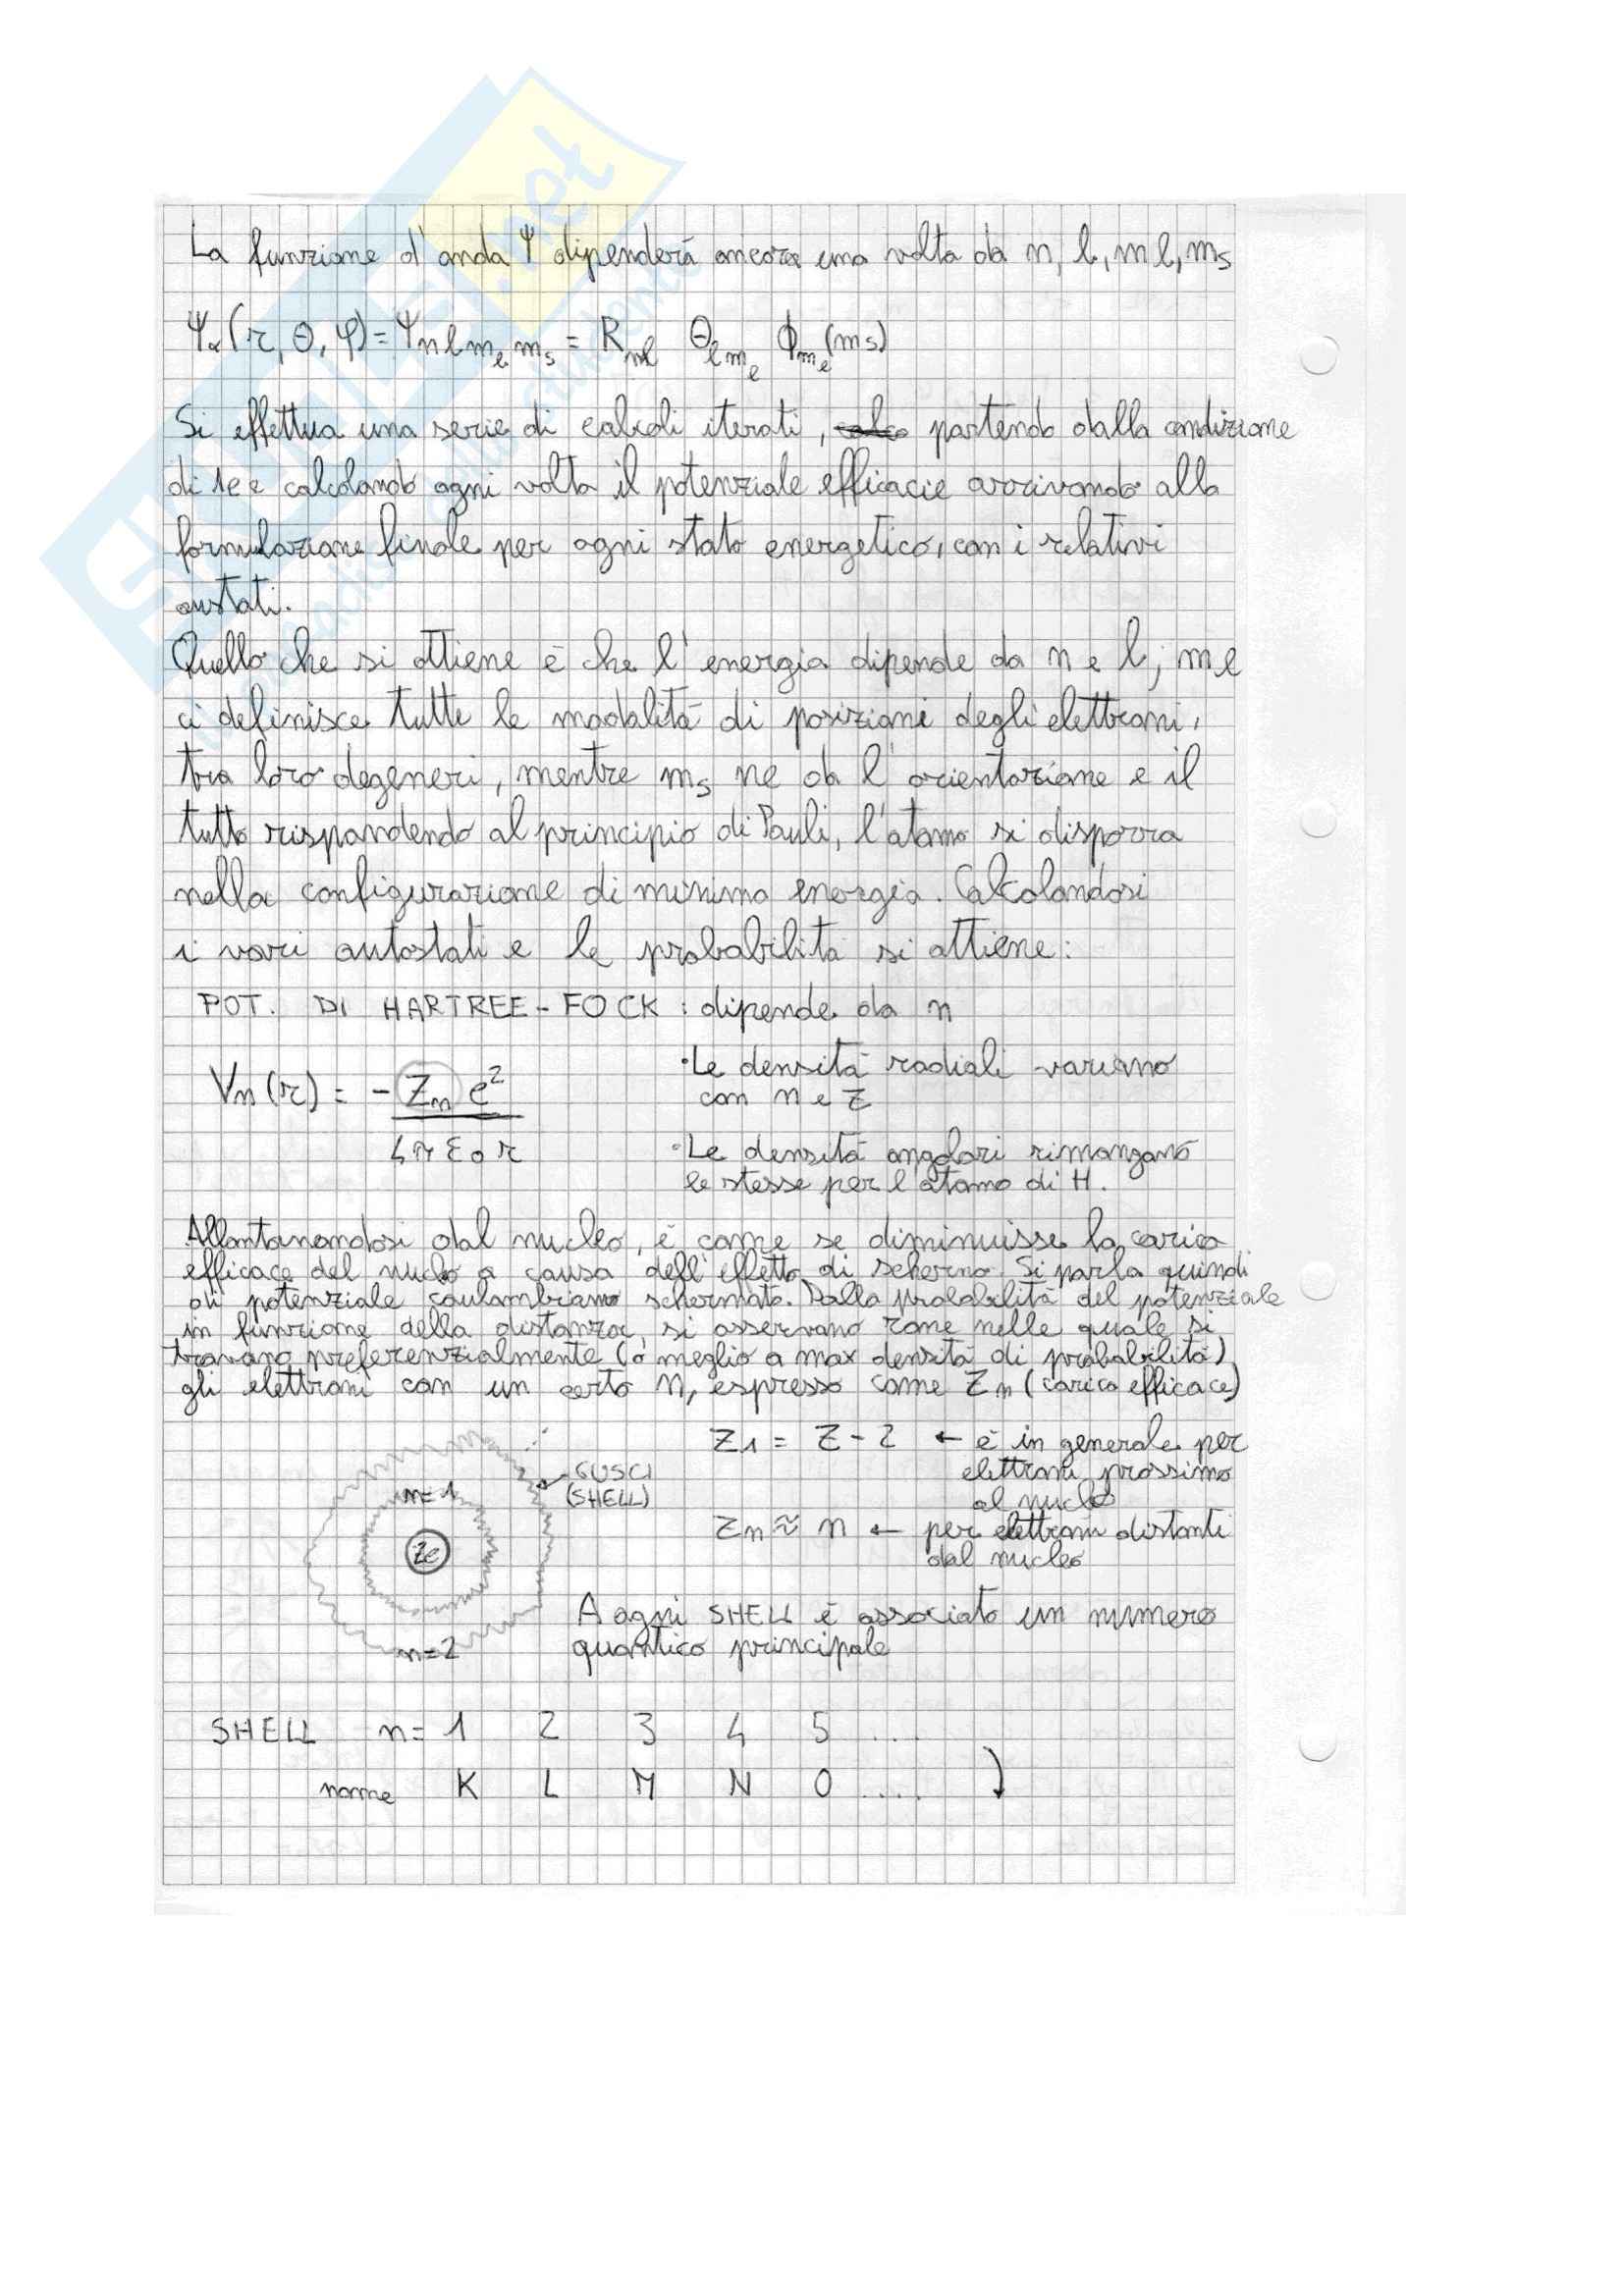 La funzione d'onda Ψ dipenderà ancora una volta da n, l, ml, ms
Ψα(r, Θ, φ) = Ψn l me ms = Rnl Θl me Φme (ms)
Si effettua una serie di calcoli iterati, partendo dalla condizione
di 1e e calcolando ogni volta il potenziale efficacie arrivando alla
formulazione finale per ogni stato energetico, con i relativi
austati.
Quello che si ottiene è che l'energia dipende da n e l, ml
ci definisce tutte le modalità di posizioni degli elettroni,
tra loro degeneri, mentre ms ne da l'orientazione e il
tutto rispondendo al principio di Pauli, l'atomo si disporrà
nella configurazione di minima energia. Calcolandosi
i vari autostati e le probabilità si ottiene:
POT. DI HARTREE-FOCK : dipende da n
Vn (r) = - Zn e²
4π ε0 r
• Le densità radiali variano
con n e Z
• Le densità angolari rimangano
le stesse per l'atomo di H.
Allontanandosi dal nucleo, è come se diminuisse la carica
efficace del nucleo a causa dell'effetto di schermo. Si parla quindi
di potenziale coulombiano schermato. Dalla probabilità del potenziale
in funzione della distanza, si osservano zone nelle quale si
trovano preferenzialmente (o meglio a max densità di probabilità)
gli elettroni con un certo n, espresso come Zn (carica efficace)
n=1
Ze
n=2
GUSCI
(SHELL)
Z1 = Z - 2 ← è in generale per
elettroni prossimo
al nucleo
Zn ≈ n ← per elettroni distanti
dal nucleo
A ogni SHELL è associato un numero
quantico principale
SHELL n= 1 2 3 4 5 ....
nome K L M N O ....